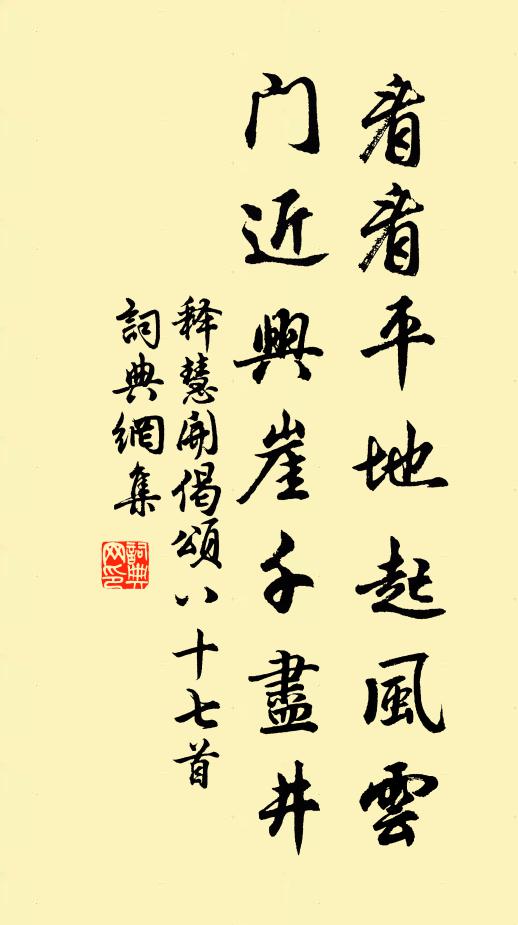 看看平地起風雲
门近興崖千盡井
释慧開偈頌八十七首
詞典網集
詞典网印